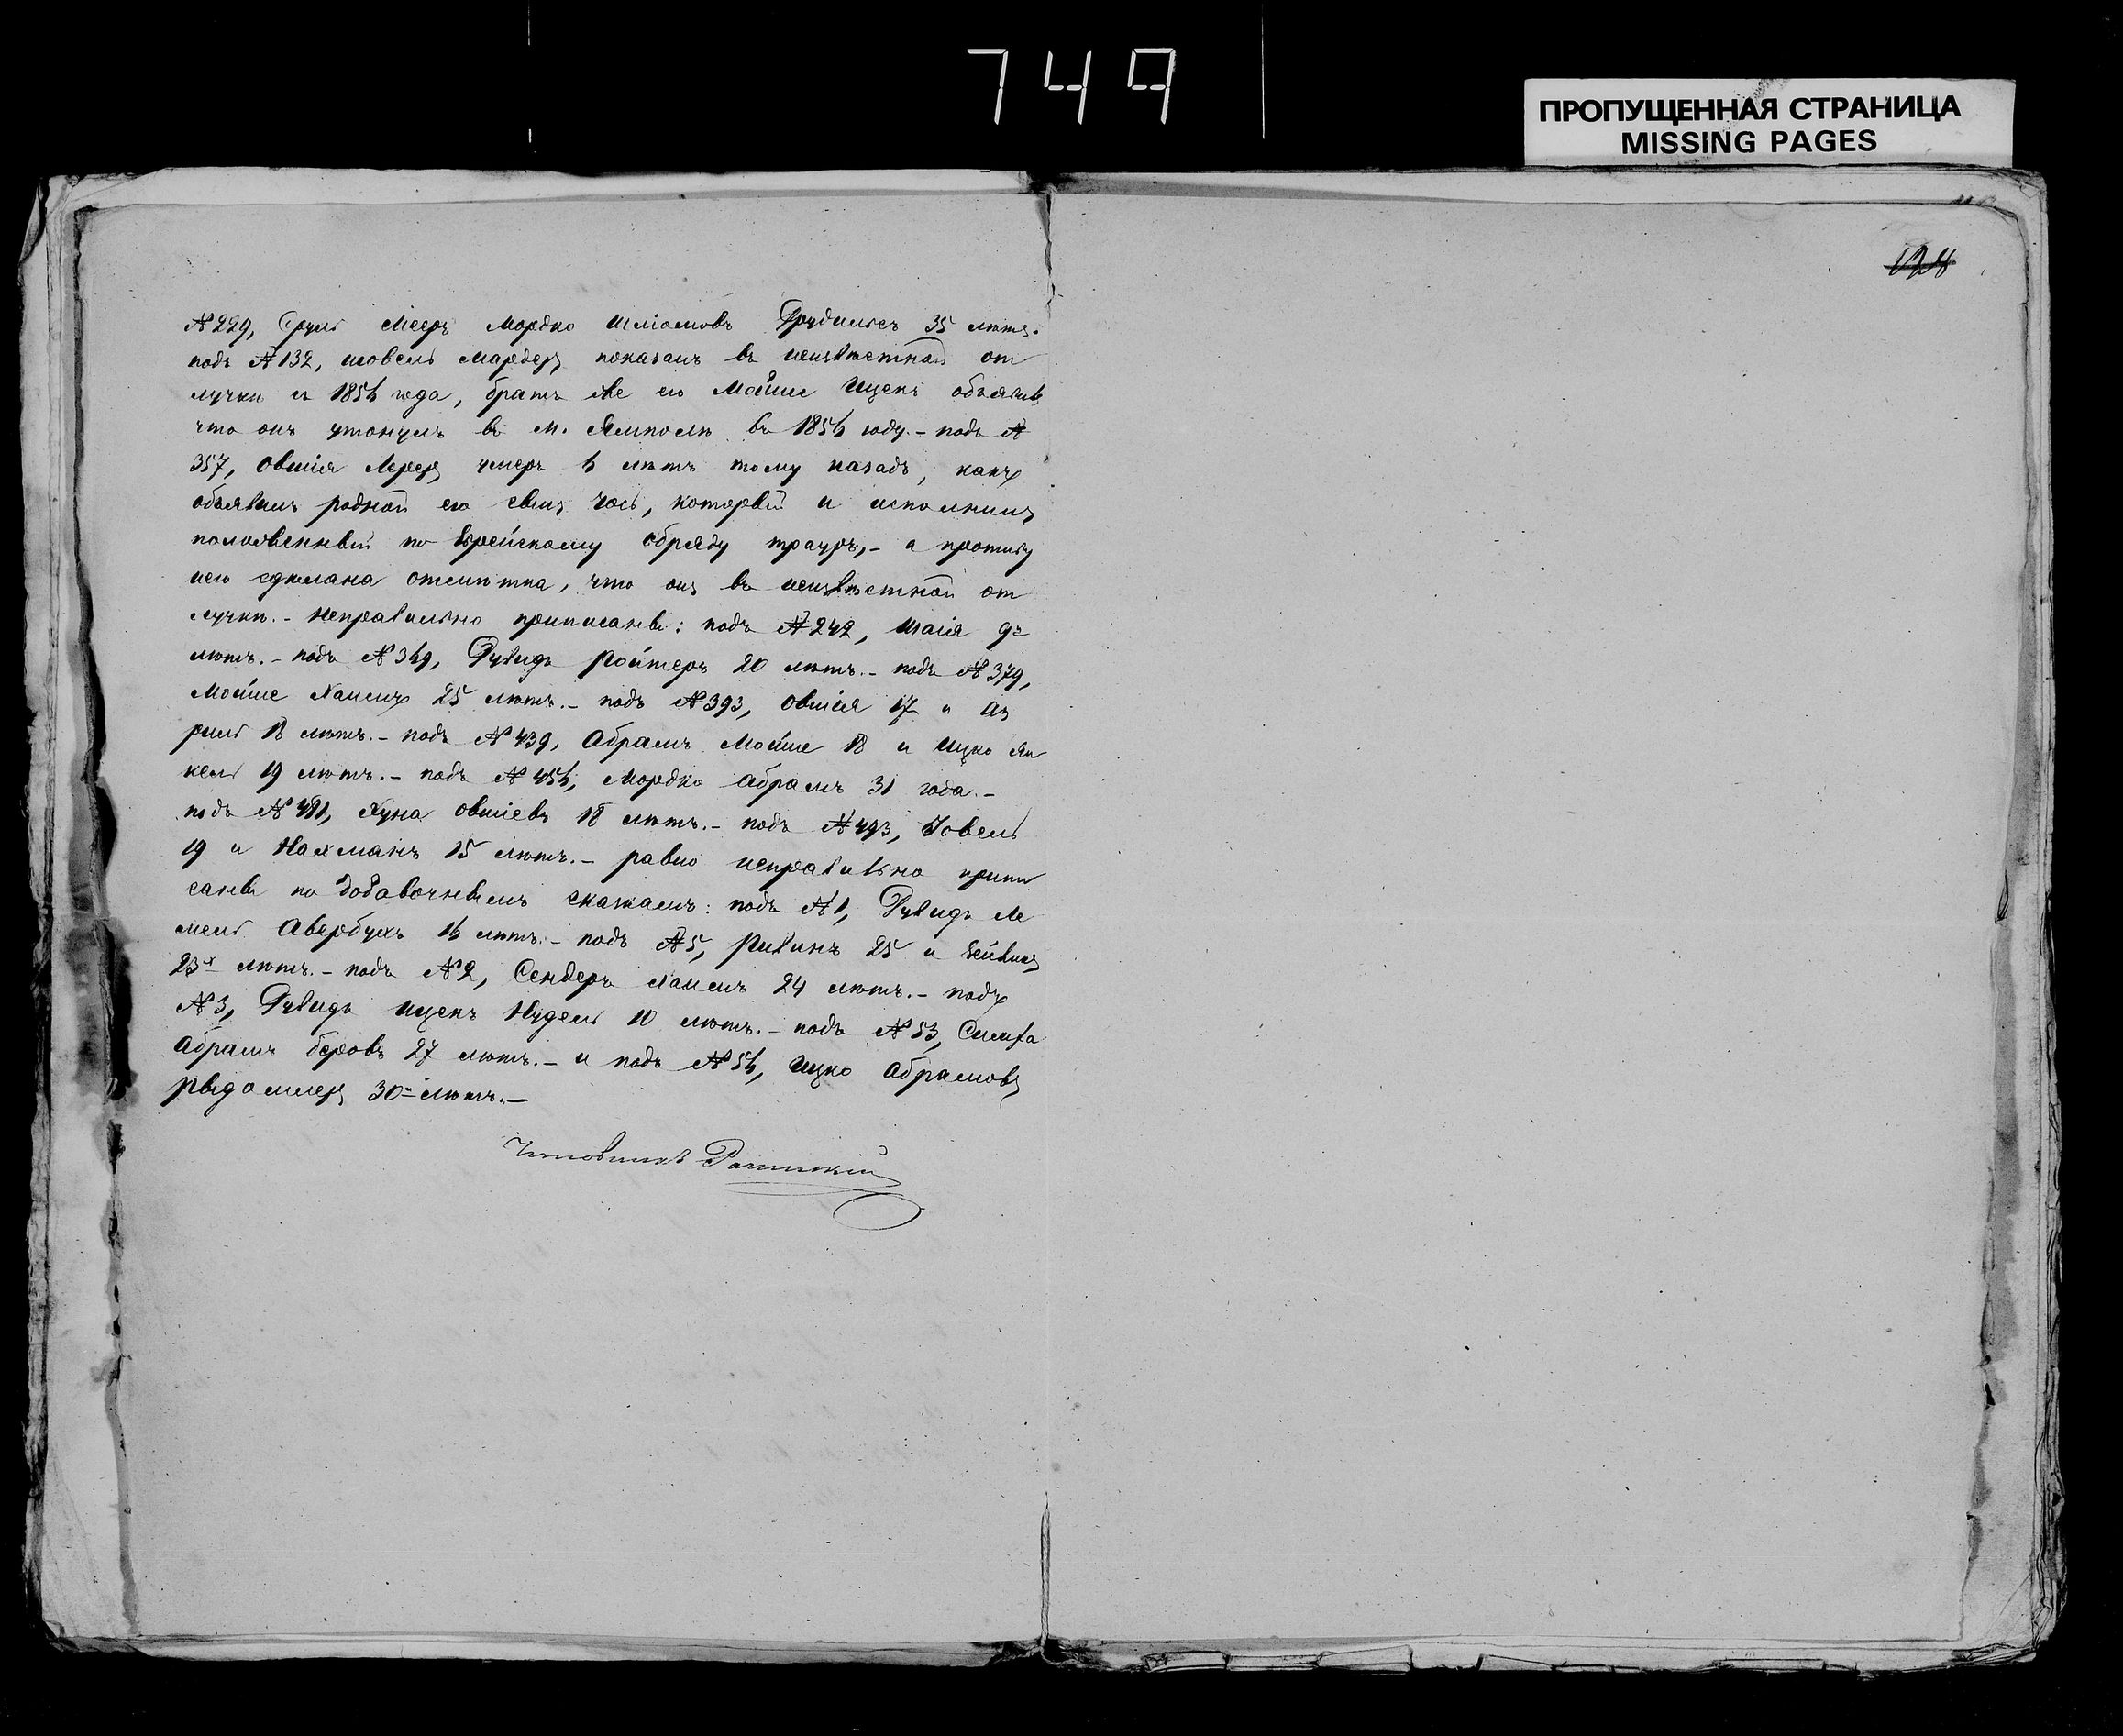 749
ПРОПУЩЕННАЯ СТРАНИЦА
MISSING PAGES
124
№ 229, Сруль Мееръ Мордко Шліомовъ 35 лѣтъ.
подъ № 132, Іовель Мардеръ показанъ въ неизвѣстной от
лучки съ 1856 года, братъ же его Мойше Ицекъ объявилъ
что онъ утонулъ въ м. Ямполѣ въ 1856 году. – подъ №
357, Овшія Лереръ умеръ 6 лѣтъ тому назадъ, какъ
объявилъ родной его сынъ Іось, который и исполнилъ
положенный по Еврейскому обряду трауръ, – а противу
него сдѣлана отмѣтка, что онъ въ неизвѣстной от
лучки. – Неправильно приписаны: подъ № 242, Шаія 9ъ
лѣтъ. – подъ № 369, Дувидъ Ройтеръ 20 лѣтъ. – подъ № 379,
Мойше Хаимъ 25 лѣтъ. – подъ № 393, Овшія 17 и Аз
риль 18 лѣтъ. – подъ № 439, Абрамъ Мойше 18 и Ицко Ян
кель 19 лѣтъ. – подъ № 456, Мордко Абрамъ 31 года. –
подъ № 481, Хуна Овшіевъ 18 лѣтъ. – подъ № 493, Іовель
19 и Нахманъ 15 лѣтъ. – равно неправильно припи
саны по добавочнымъ сказкамъ: подъ № 1, Дувидъ Ле
мель Авербухъ 16 лѣтъ. – подъ № 5, Ривинъ 25 и Лейвикъ
23х лѣтъ. – подъ № 2, Сендеръ Хаимъ 24 лѣтъ. – подъ
№ 3, Дувидъ Ицекъ Нудель 10 лѣтъ. – подъ № 53, Симха
Абрамъ Беровъ 27 лѣтъ. – и подъ № 56, Ицко Абрамовъ
30ъ лѣтъ. –
Чиновникъ